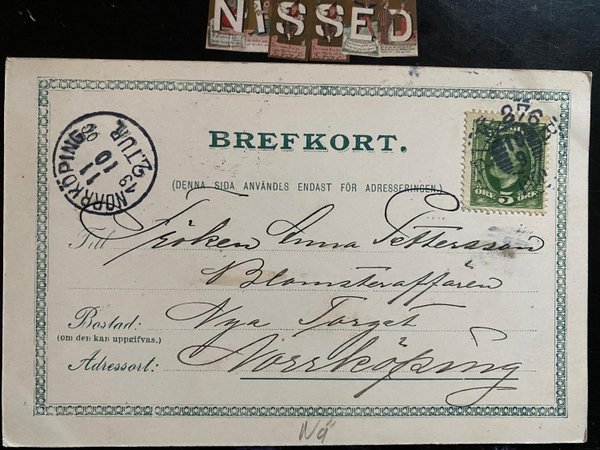 NISSED
BREFKORT.
(DENNA SIDA ANVÄNDES ENDAST FÖR ADRESSERINGEN.)
NORRKÖPING
11
10
2.TUR.
276
5
ÖRE 5 ÖRE
Till Fröken Anna Pettersson
Blomsteraffären
Bostad: Nya Torget
(om den kan uppgifvas.)
Adressort: Norrköping